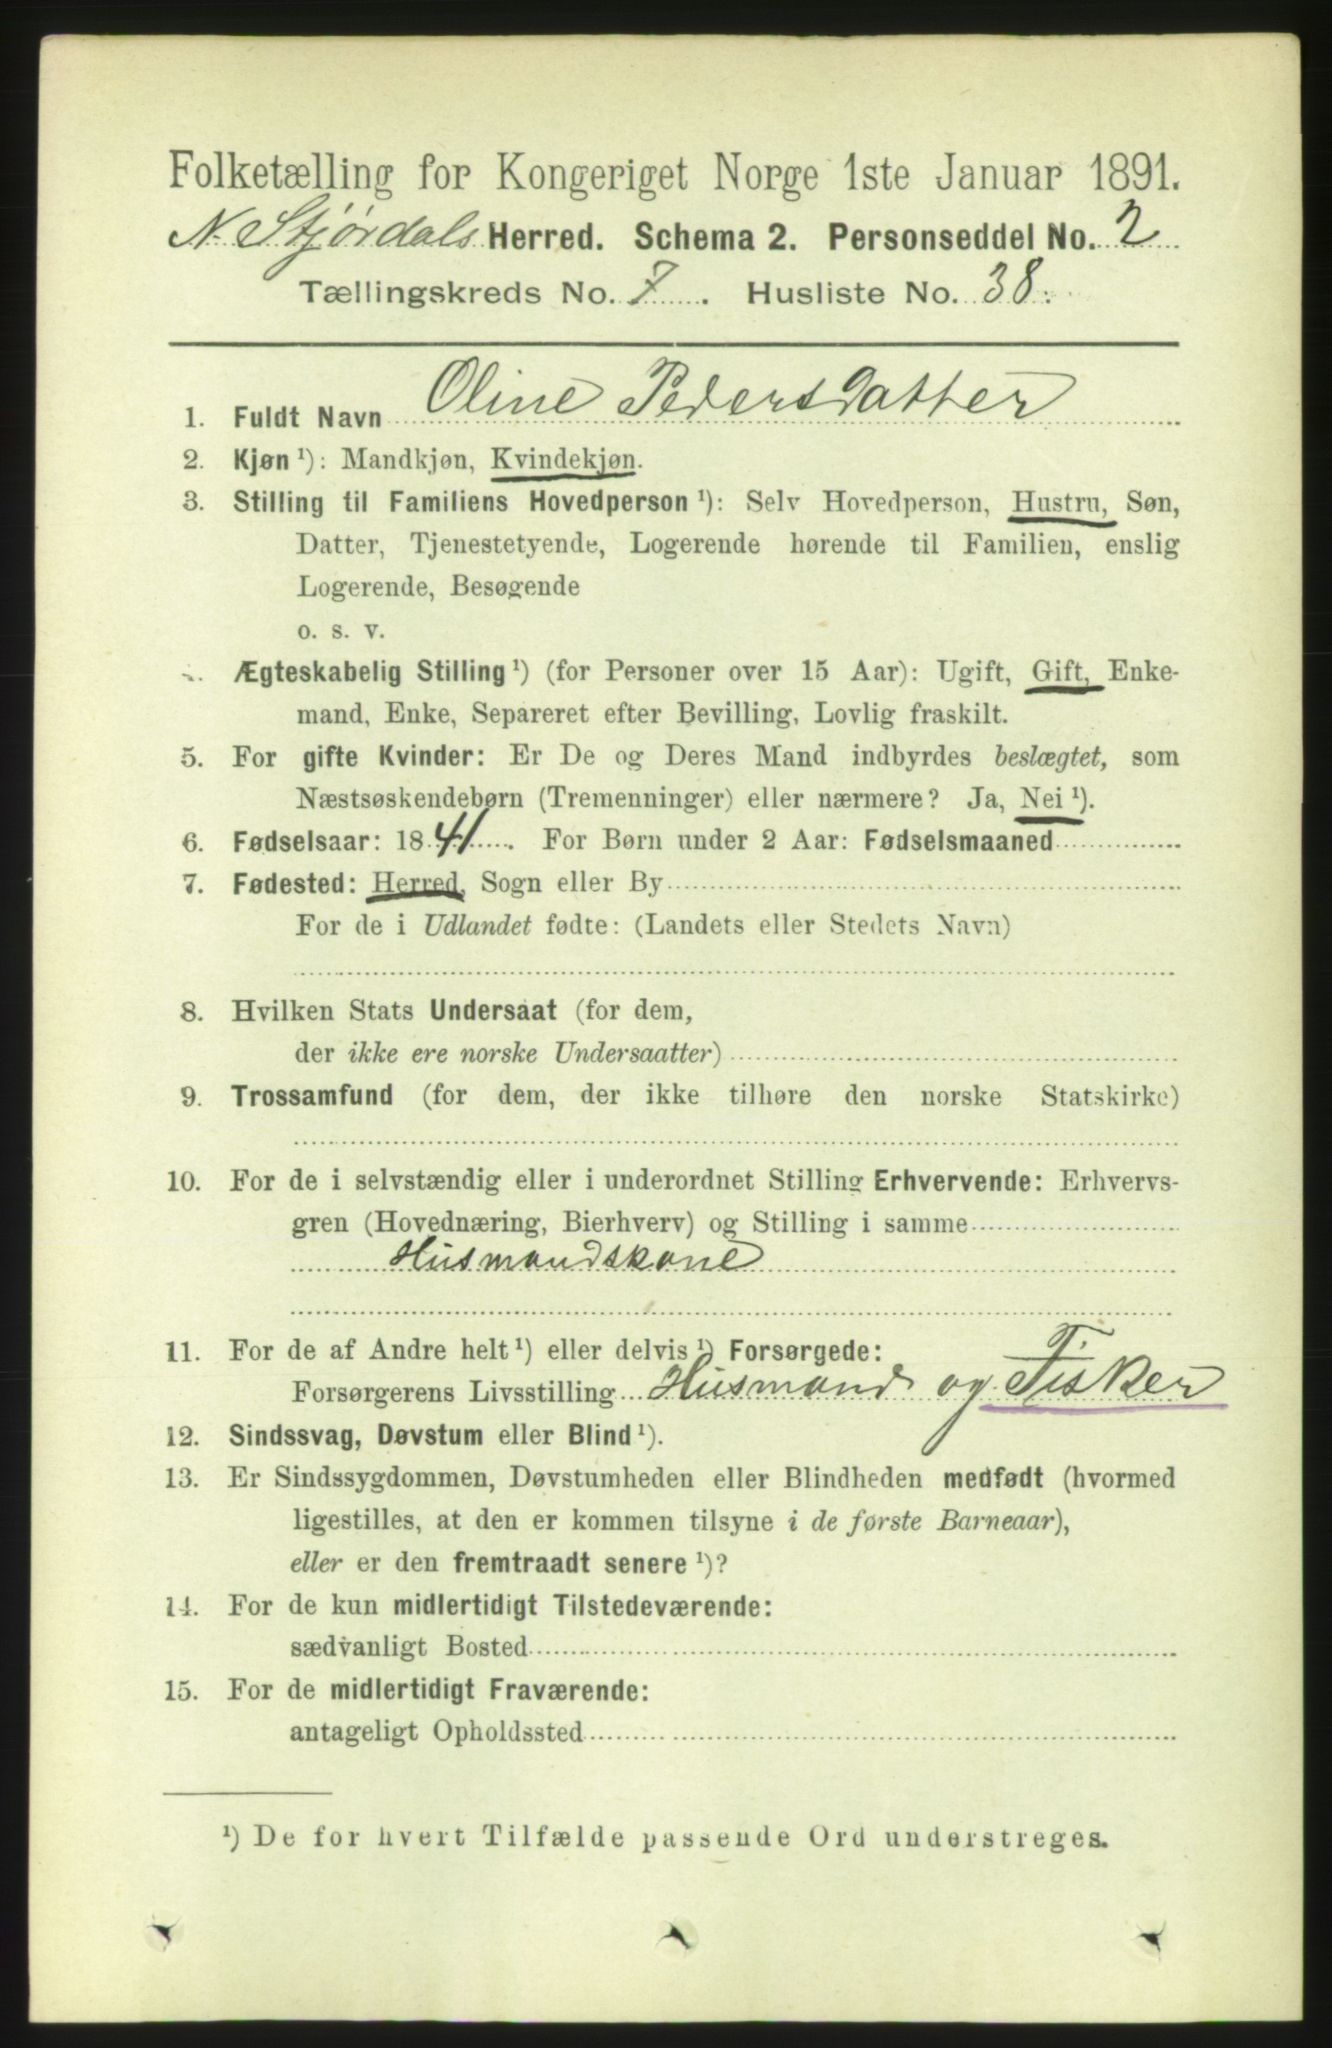 Folketælling for Kongeriget Norge 1ste Januar 1891.
N. Stjørdals Herred. Schema 2. Personseddel No. 2
Tællingskreds No. 7. Husliste No. 38.
Oline Pedersdatter
1. Fuldt Navn
2. Kjøn ¹): Mandkjøn, Kvindekjøn.
3. Stilling til Familiens Hovedperson ¹): Selv Hovedperson, Hustru, Søn,
Datter, Tjenestetyende, Logerende hørende til Familien, enslig
Logerende, Besøgende
o. s. v.
Ægteskabelig Stilling ¹) (for Personer over 15 Aar): Ugift, Gift, Enke-
mand, Enke, Separeret efter Bevilling, Lovlig fraskilt.
5. For gifte Kvinder: Er De og Deres Mand indbyrdes beslægtet, som
Næstsøskendebørn (Tremenninger) eller nærmere? Ja, Nei ¹).
6. Fødselsaar: 1841. For Børn under 2 Aar: Fødselsmaaned
7. Fødested: Herred, Sogn eller By
For de i Udlandet fødte: (Landets eller Stedets Navn)
8. Hvilken Stats Undersaat (for dem,
der ikke ere norske Undersaatter)
9. Trossamfund (for dem, der ikke tilhøre den norske Statskirke)
10. For de i selvstændig eller i underordnet Stilling Erhvervende: Erhvervs-
gren (Hovednæring, Bierhverv) og Stilling i samme
Husmandskone
11. For de af Andre helt ¹) eller delvis ¹) Forsørgede:
Forsørgerens Livsstilling Husmand og Fisker
12. Sindssvag, Døvstum eller Blind ¹).
13. Er Sindssygdommen, Døvstumheden eller Blindheden medfødt (hvormed
ligestilles, at den er kommen tilsyne i de første Barneaar),
eller er den fremtraadt senere ¹)?
14. For de kun midlertidigt Tilstedeværende:
sædvanligt Bosted
15. For de midlertidigt Fraværende:
antageligt Opholdssted
¹) De for hvert Tilfælde passende Ord understreges.